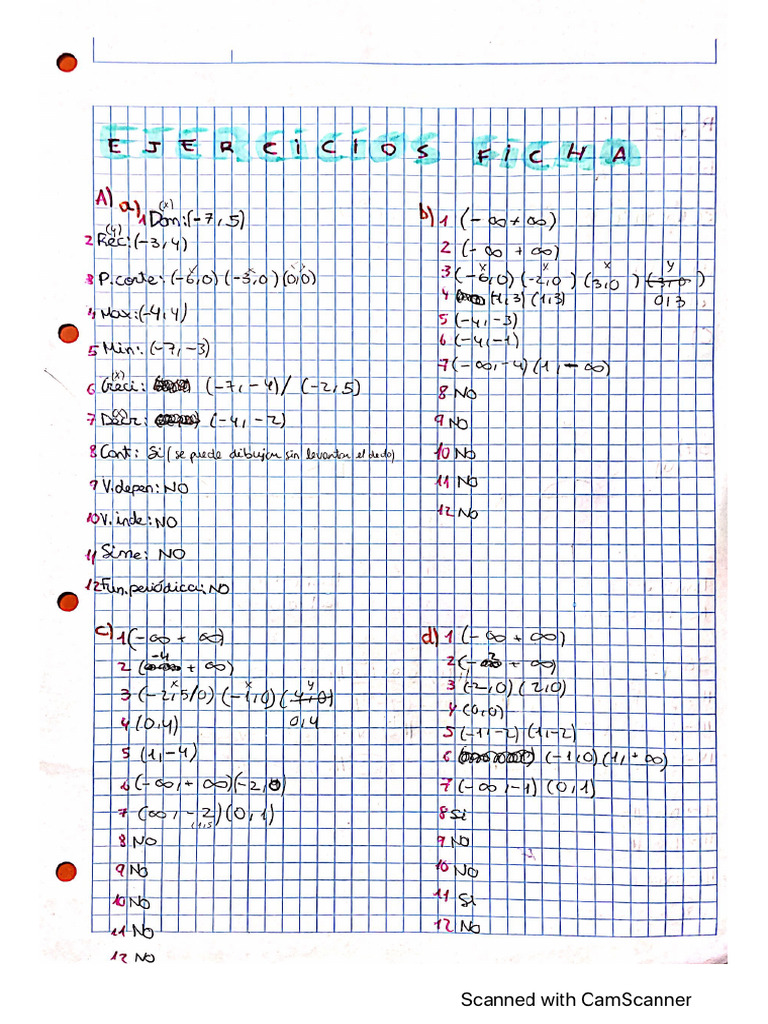 EJERCICIOS FICHA
A) a) (x)
1 Dom: (-7, 5)
(y)
2 Rec: (-3, 4)
3 P. corte: (-6, 0) (-3, 0) (0, 0)
4 Max: (-4, 4)
5 Min: (-7, -3)
(x)
6 Creci: (-7, -4) / (-2, 5)
(x)
7 Decr: (-4, -2)
8 Cont: Si (se puede dibujar sin levantar el dedo)
9 V. depen: NO
10 V. inde: NO
11 Sime: NO
12 Fun. periódica: NO
b) 1 (-∞ +∞)
2 (-∞ +∞)
x x x y
3 (-6, 0) (-2, 0 ) (3, 0 ) (3, 0 )
0, 3
4 (1, 3) (1, 3)
5 (-4, -3)
6 (-4, -1)
7 (-∞, -4) (1, -∞)
8 NO
9 NO
10 NO
11 NO
12 NO
c) 1 (-∞ + ∞)
-4
2 ( + ∞)
x x y
3 (-2, 5/0) (-1, 0) (4, 0)
0, 4
4 (0, 4)
5 (1, -4)
6 (-∞, +∞) (-2, 0)
7 (∞, -2) (0, 1)
8 NO
9 NO
10 NO
11 NO
12 NO
d) 1 (-∞ + ∞)
2 (-2 + ∞)
3 (-2, 0) (2, 0)
4 (0, 0)
5 (-1, -2) (1, -2)
6 (-1, 0) (1, +∞)
7 (-∞, -1) (0, 1)
8 Si
9 NO
10 NO
11 Si
12 NO
Scanned with CamScanner